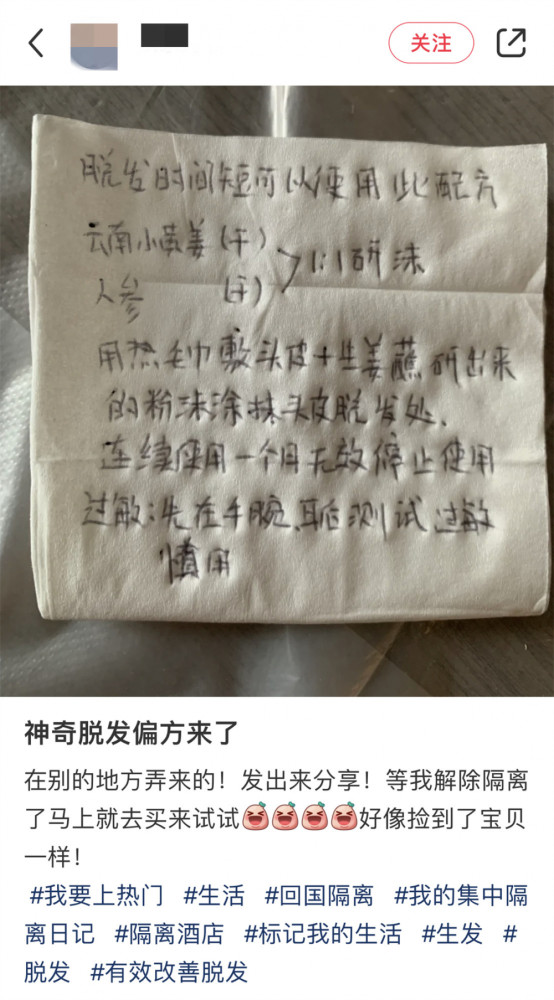 关注
脱发时间短可以使用此配方
云南小黄姜(干)
1:1研沫
人参 (干)
用热毛巾敷头皮+生姜蘸研出来
的粉沫涂抹头皮脱发处.
连续使用一个月无效停止使用
过敏:先在手腕、耳后测试过敏
慎用
神奇脱发偏方来了
在别的地方弄来的！发出来分享！等我解除隔离
了马上就去买来试试好像捡到了宝贝
一样！
#我要上热门 #生活 #回国隔离 #我的集中隔
离日记 #隔离酒店 #标记我的生活 #生发 #
脱发 #有效改善脱发